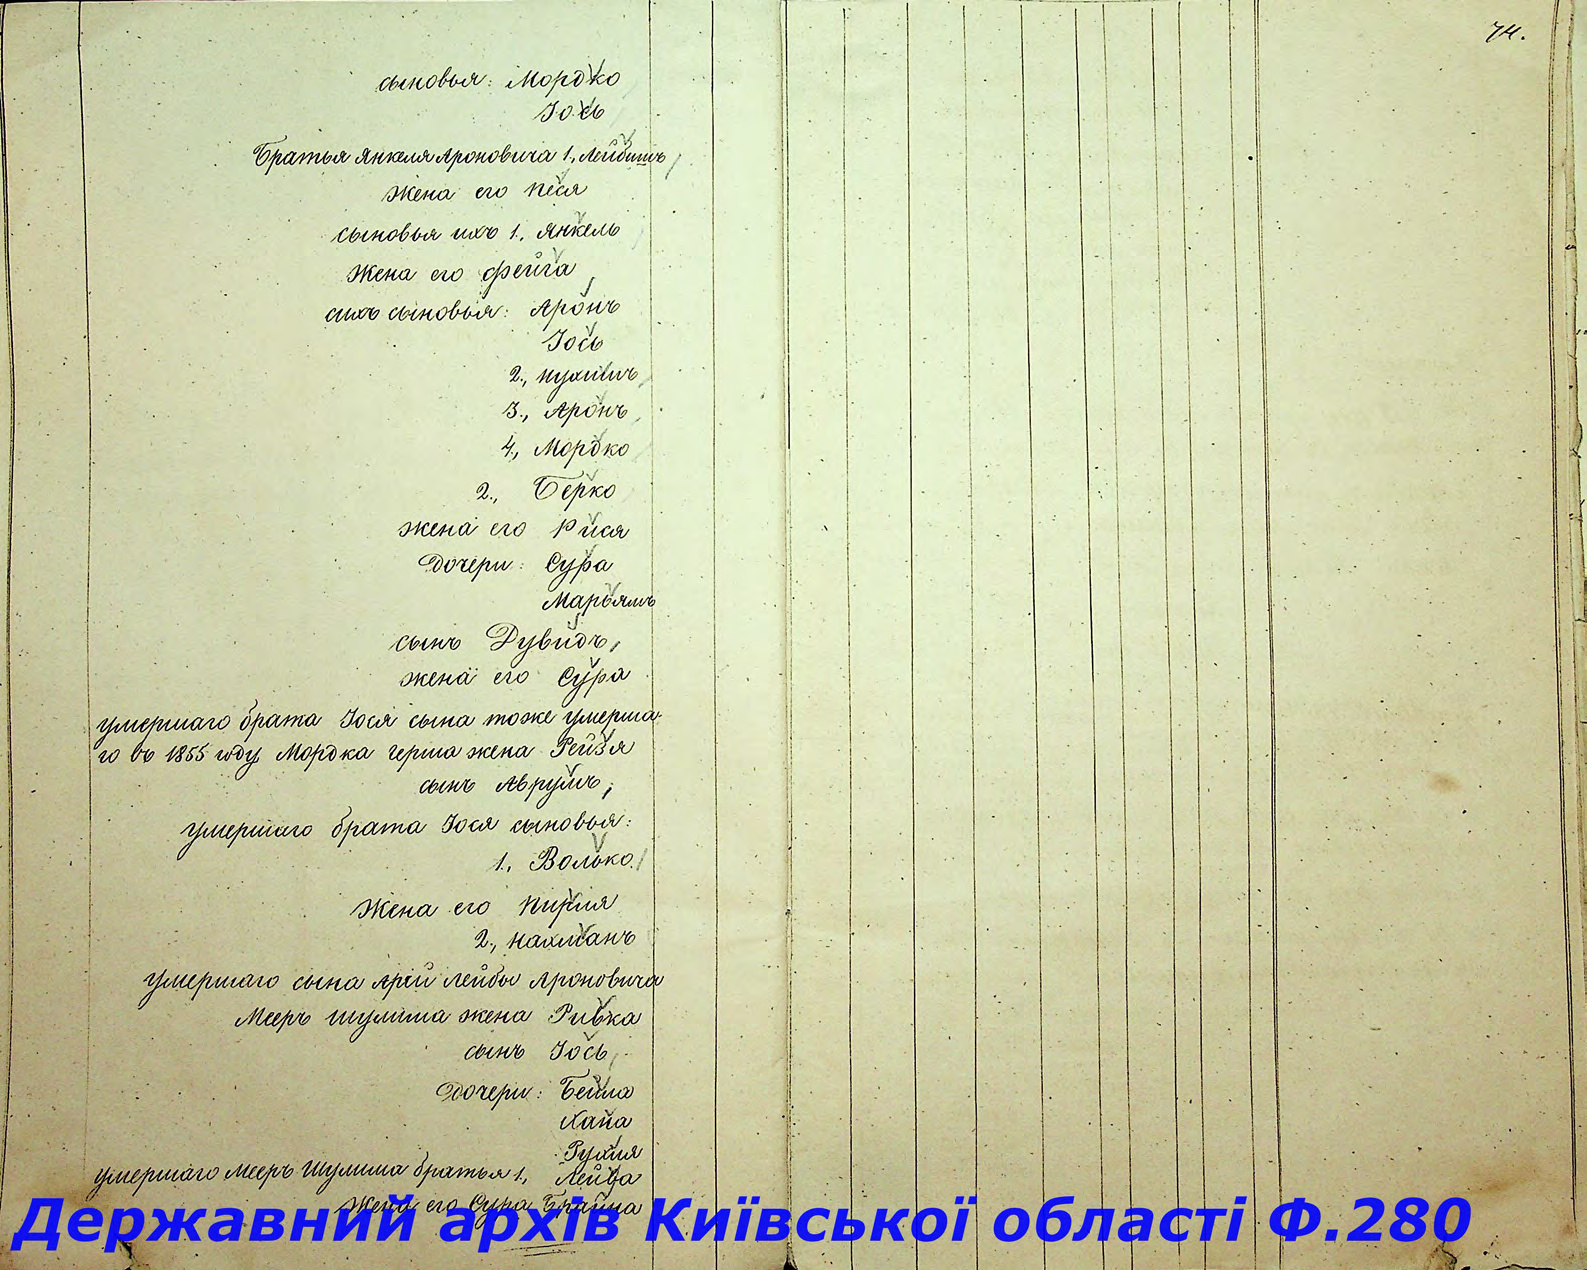 74.
сыновья: Мордко
Іось
Братья Янкеля Ароновича 1., Лейбишъ
Жена его Песя
сыновья ихъ 1., Янкель
Жена его Фейга
сихъ сыновья: Аронъ
Іось
2., Нухимъ
3., Аронъ
4., Мордко
2., Берко
жена его Рися
Дочери: Сура
Марьямъ
сынъ Дувидъ,
жена его Сура
умершаго брата Іося сына тоже умерша-
го въ 1855 году Мордка Герша жена Рейзя
сынъ Аврумъ,
умершаго брата Іося сыновья:
1., Волько
Жена его Пирля
2., Нахманъ
умершаго сына Арій Лейбы Ароновича
Мееръ Шулима жена Ривка
сынъ Іось
Дочери: Бейла
Хана
Рухля
умершаго Мееръ Шулима братья 1., Лейба
Жена его Сура Брайна
Державний архів Київської області Ф.280